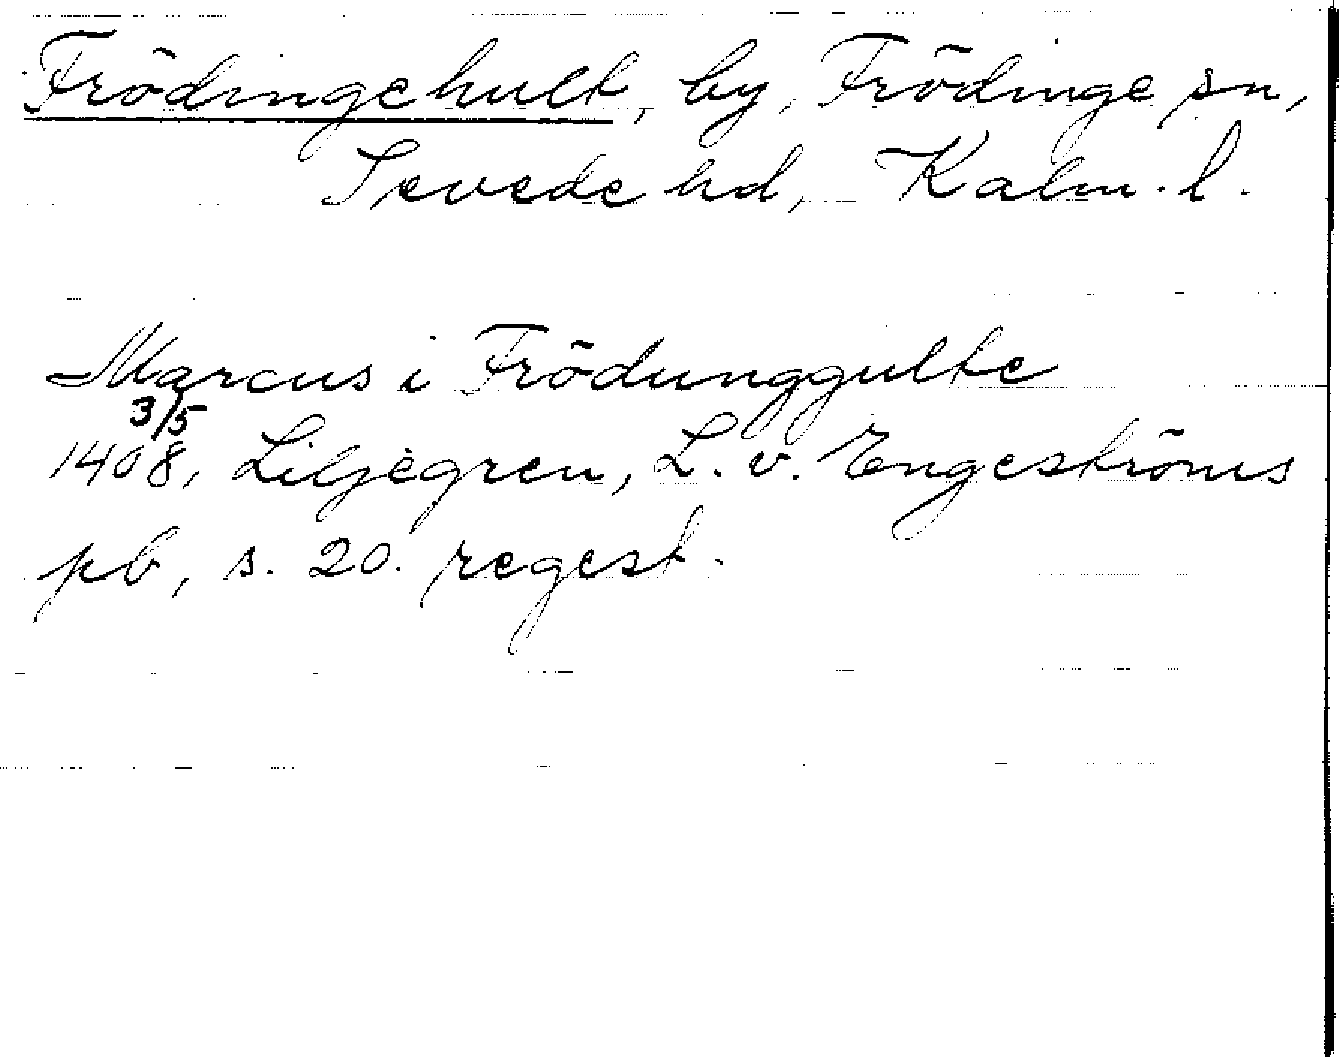 Frödingehult, by, Frödinge sn,
Sevede hd, Kalm. l.
Marcus i Frödunggulte
3/5
1408, Liljegren, L. v. Engeströms
pb, s. 20. regest.